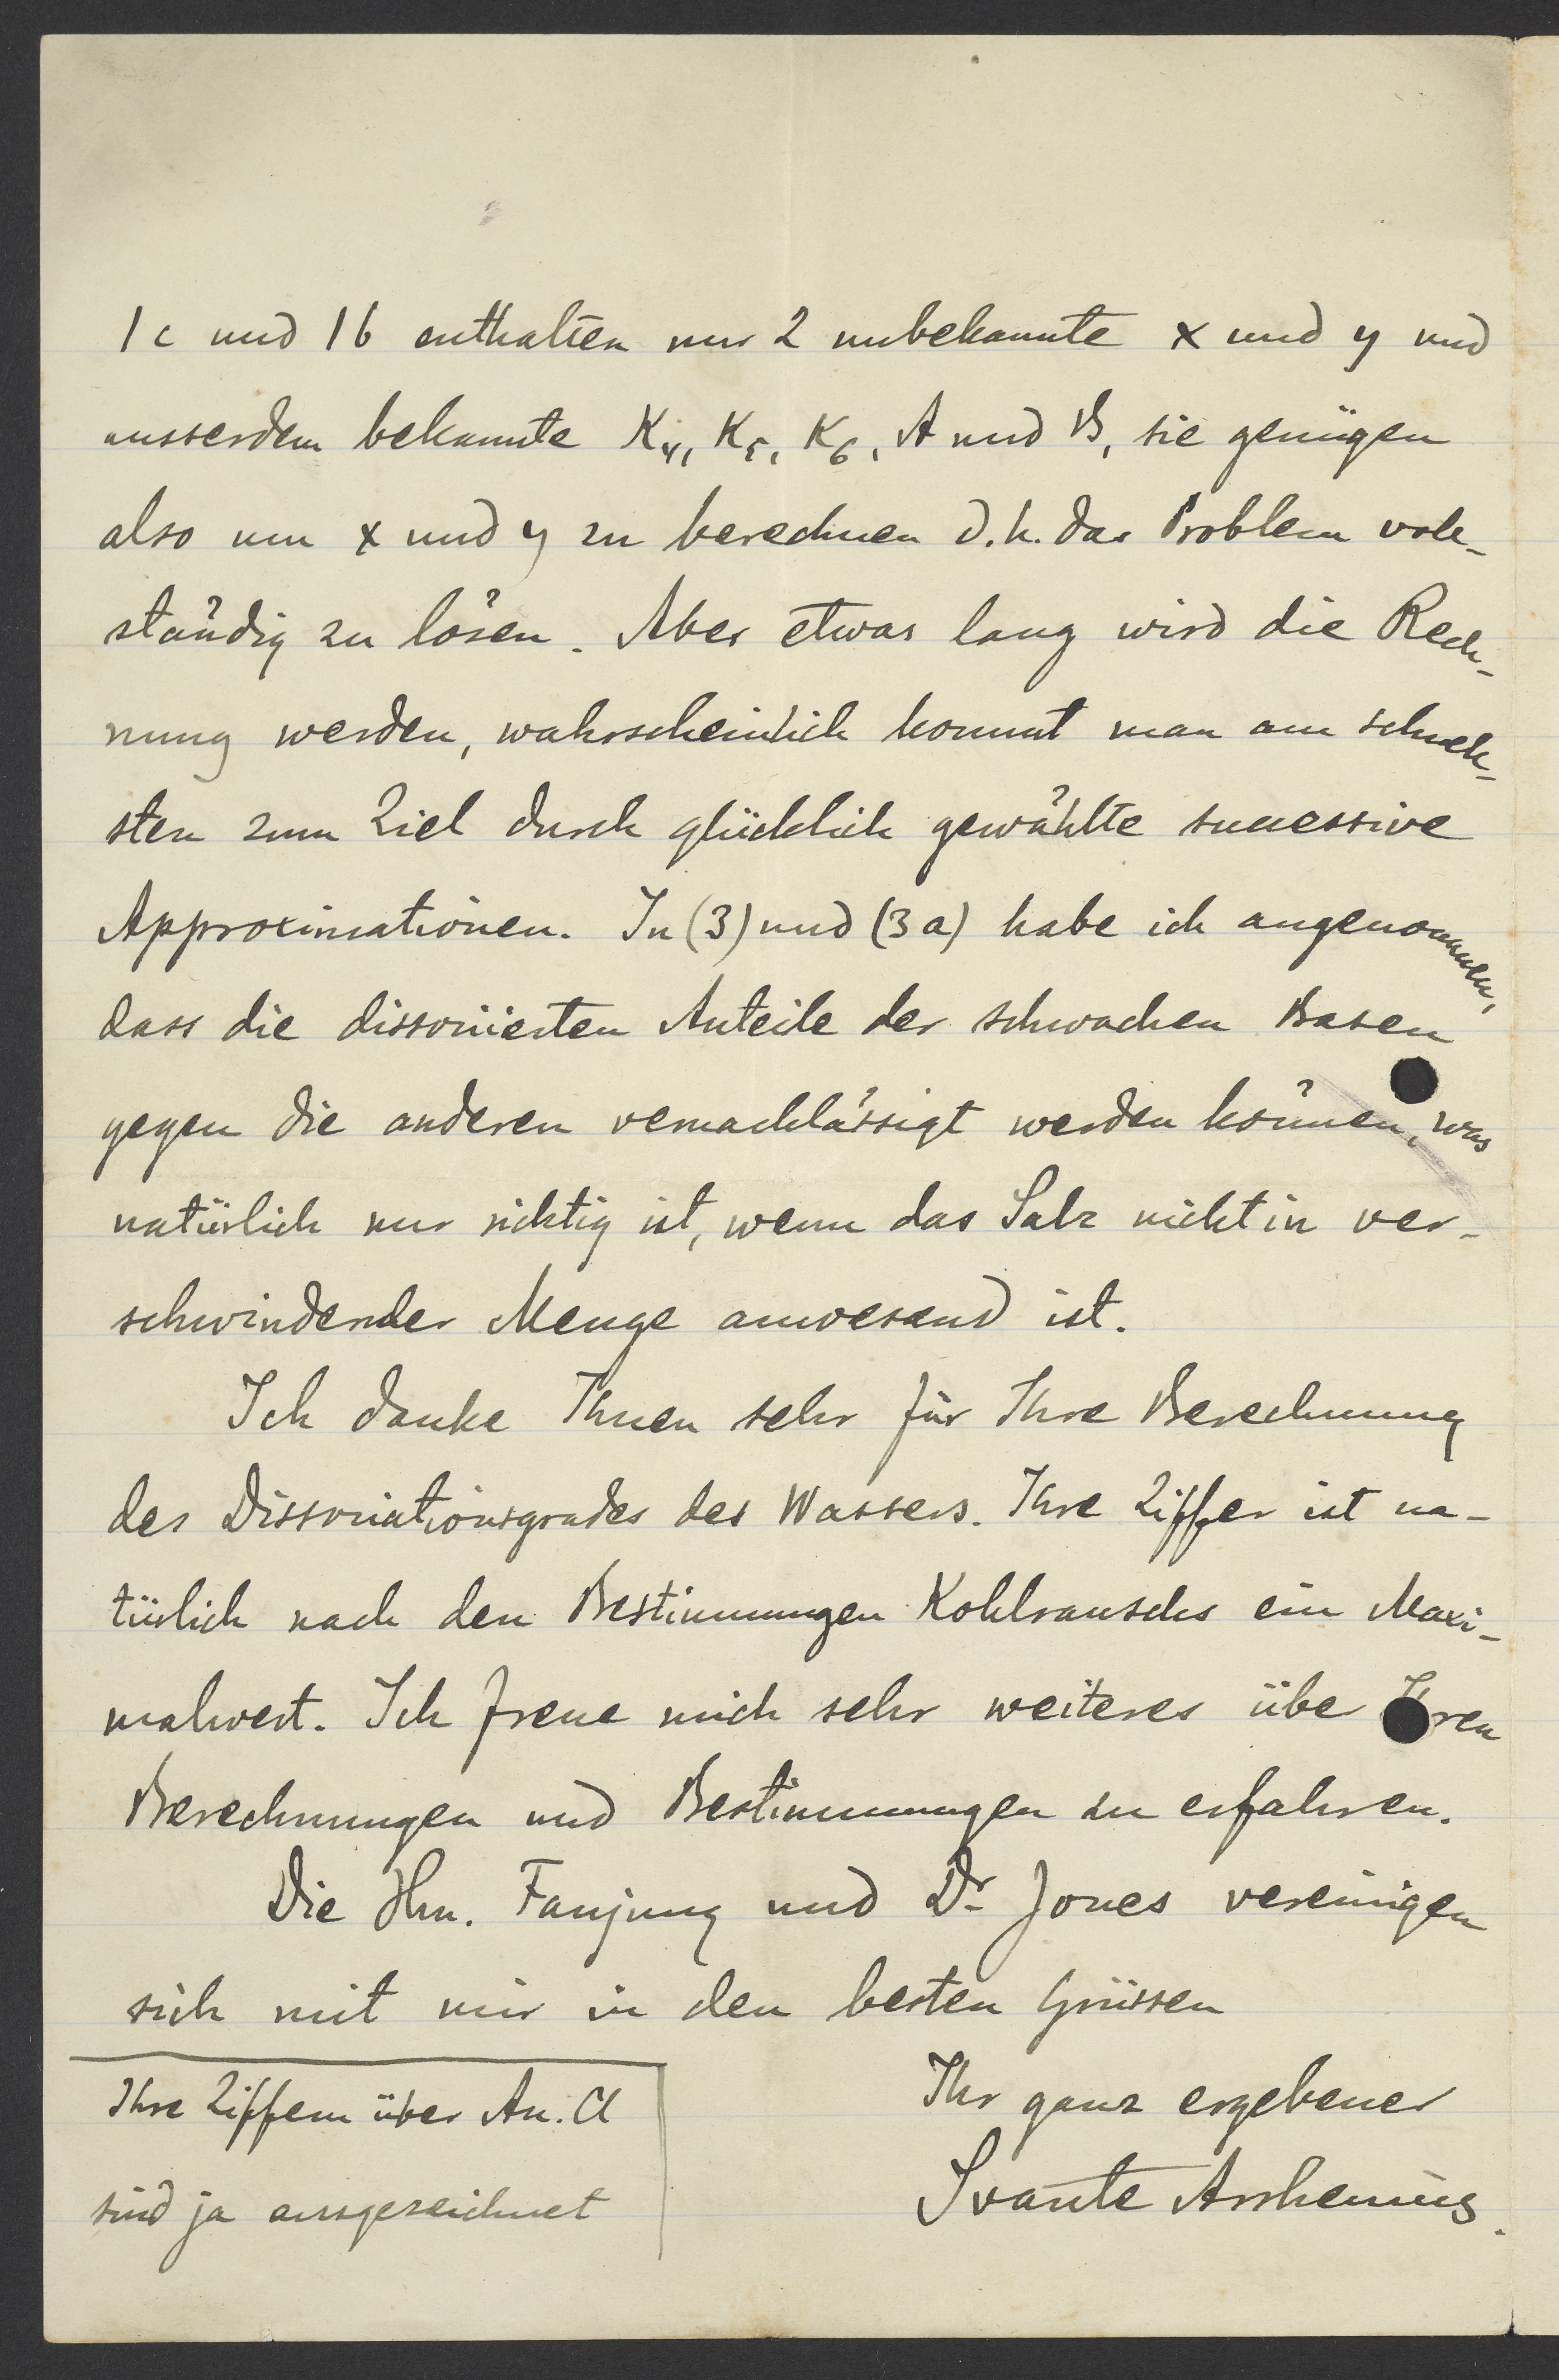 1c und 1b enthalten nur 2 unbekannte x und y und
ausserdem bekannte K4, K5, K6, A und B, sie genügen
also um x und y zu berechnen d.h. das Problem voll-
ständig zu lösen. Aber etwas lang wird die Rech-
nung werden, wahrscheinlich kommt man am schnell-
sten zum Ziel durch glücklich gewählte successive
Approximationen. In (3) und (3a) habe ich angenommen,
dass die dissociierten Anteile der schwachen Basen
gegen die anderen vernachlässigt werden können, was
natürlich nur richtig ist, wenn das Salz nicht in ver-
schwindender Menge anwesend ist.
Ich danke Ihnen sehr für Ihre Berechnung
des Dissociationsgrades des Wassers. Ihre Ziffer ist na-
türlich nach den Bestimmungen Kohlrauschs ein Maxi-
malwert. Ich freue mich sehr weiteres über Ihren
Berechnungen und Bestimmungen zu erfahren.
Die Hrn. Fanjung und Dr Jones vereinigen
sich mit mir in den besten Grüssen
Ihr ganz ergebener
Svante Arrhenius.
Ihre Ziffern über An. Cl
sind ja ausgezeichnet